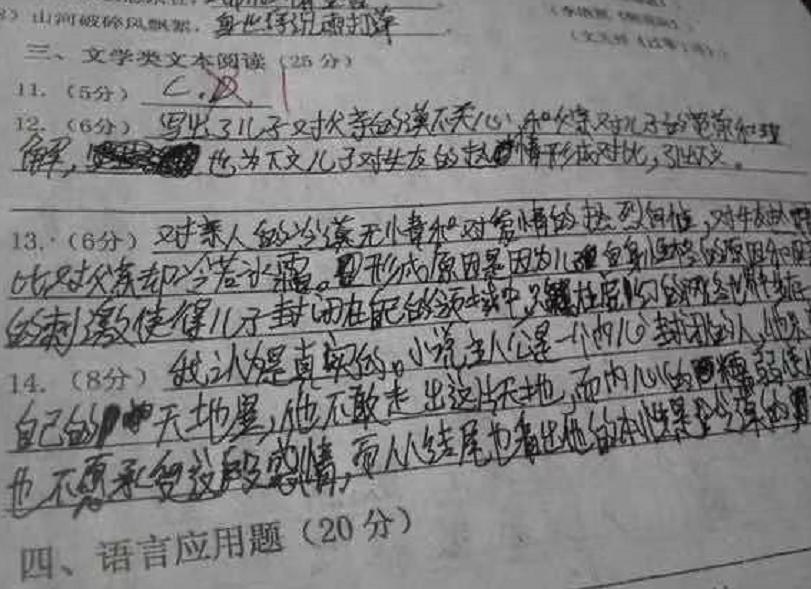 3) 山河破碎风飘絮，身世浮沉雨打萍
三、文学类文本阅读（25分）
11.（5分） C.D
12.（6分） 写出了儿子对父亲的漠不关心，和父亲对儿子的宽容和理
解， 也为下文儿子对女友的热情形成对比，引出下文。
13.（6分）对亲人的冷漠无情和对爱情的热烈向往，对女友
比对父亲却冷若冰霜。形成原因是因为儿子自身性格的原因和
的刺激使得儿子封闭在自己的领域中
14.（8分）我认为是真实的。小说主人公是一个内心封闭的人，他
自己的 天地里，他不敢走出这片天地，而内心的 懦弱使
他不愿承受这段感情，而从结尾也看出他的本性是冷漠的
四、语言应用题（20分）